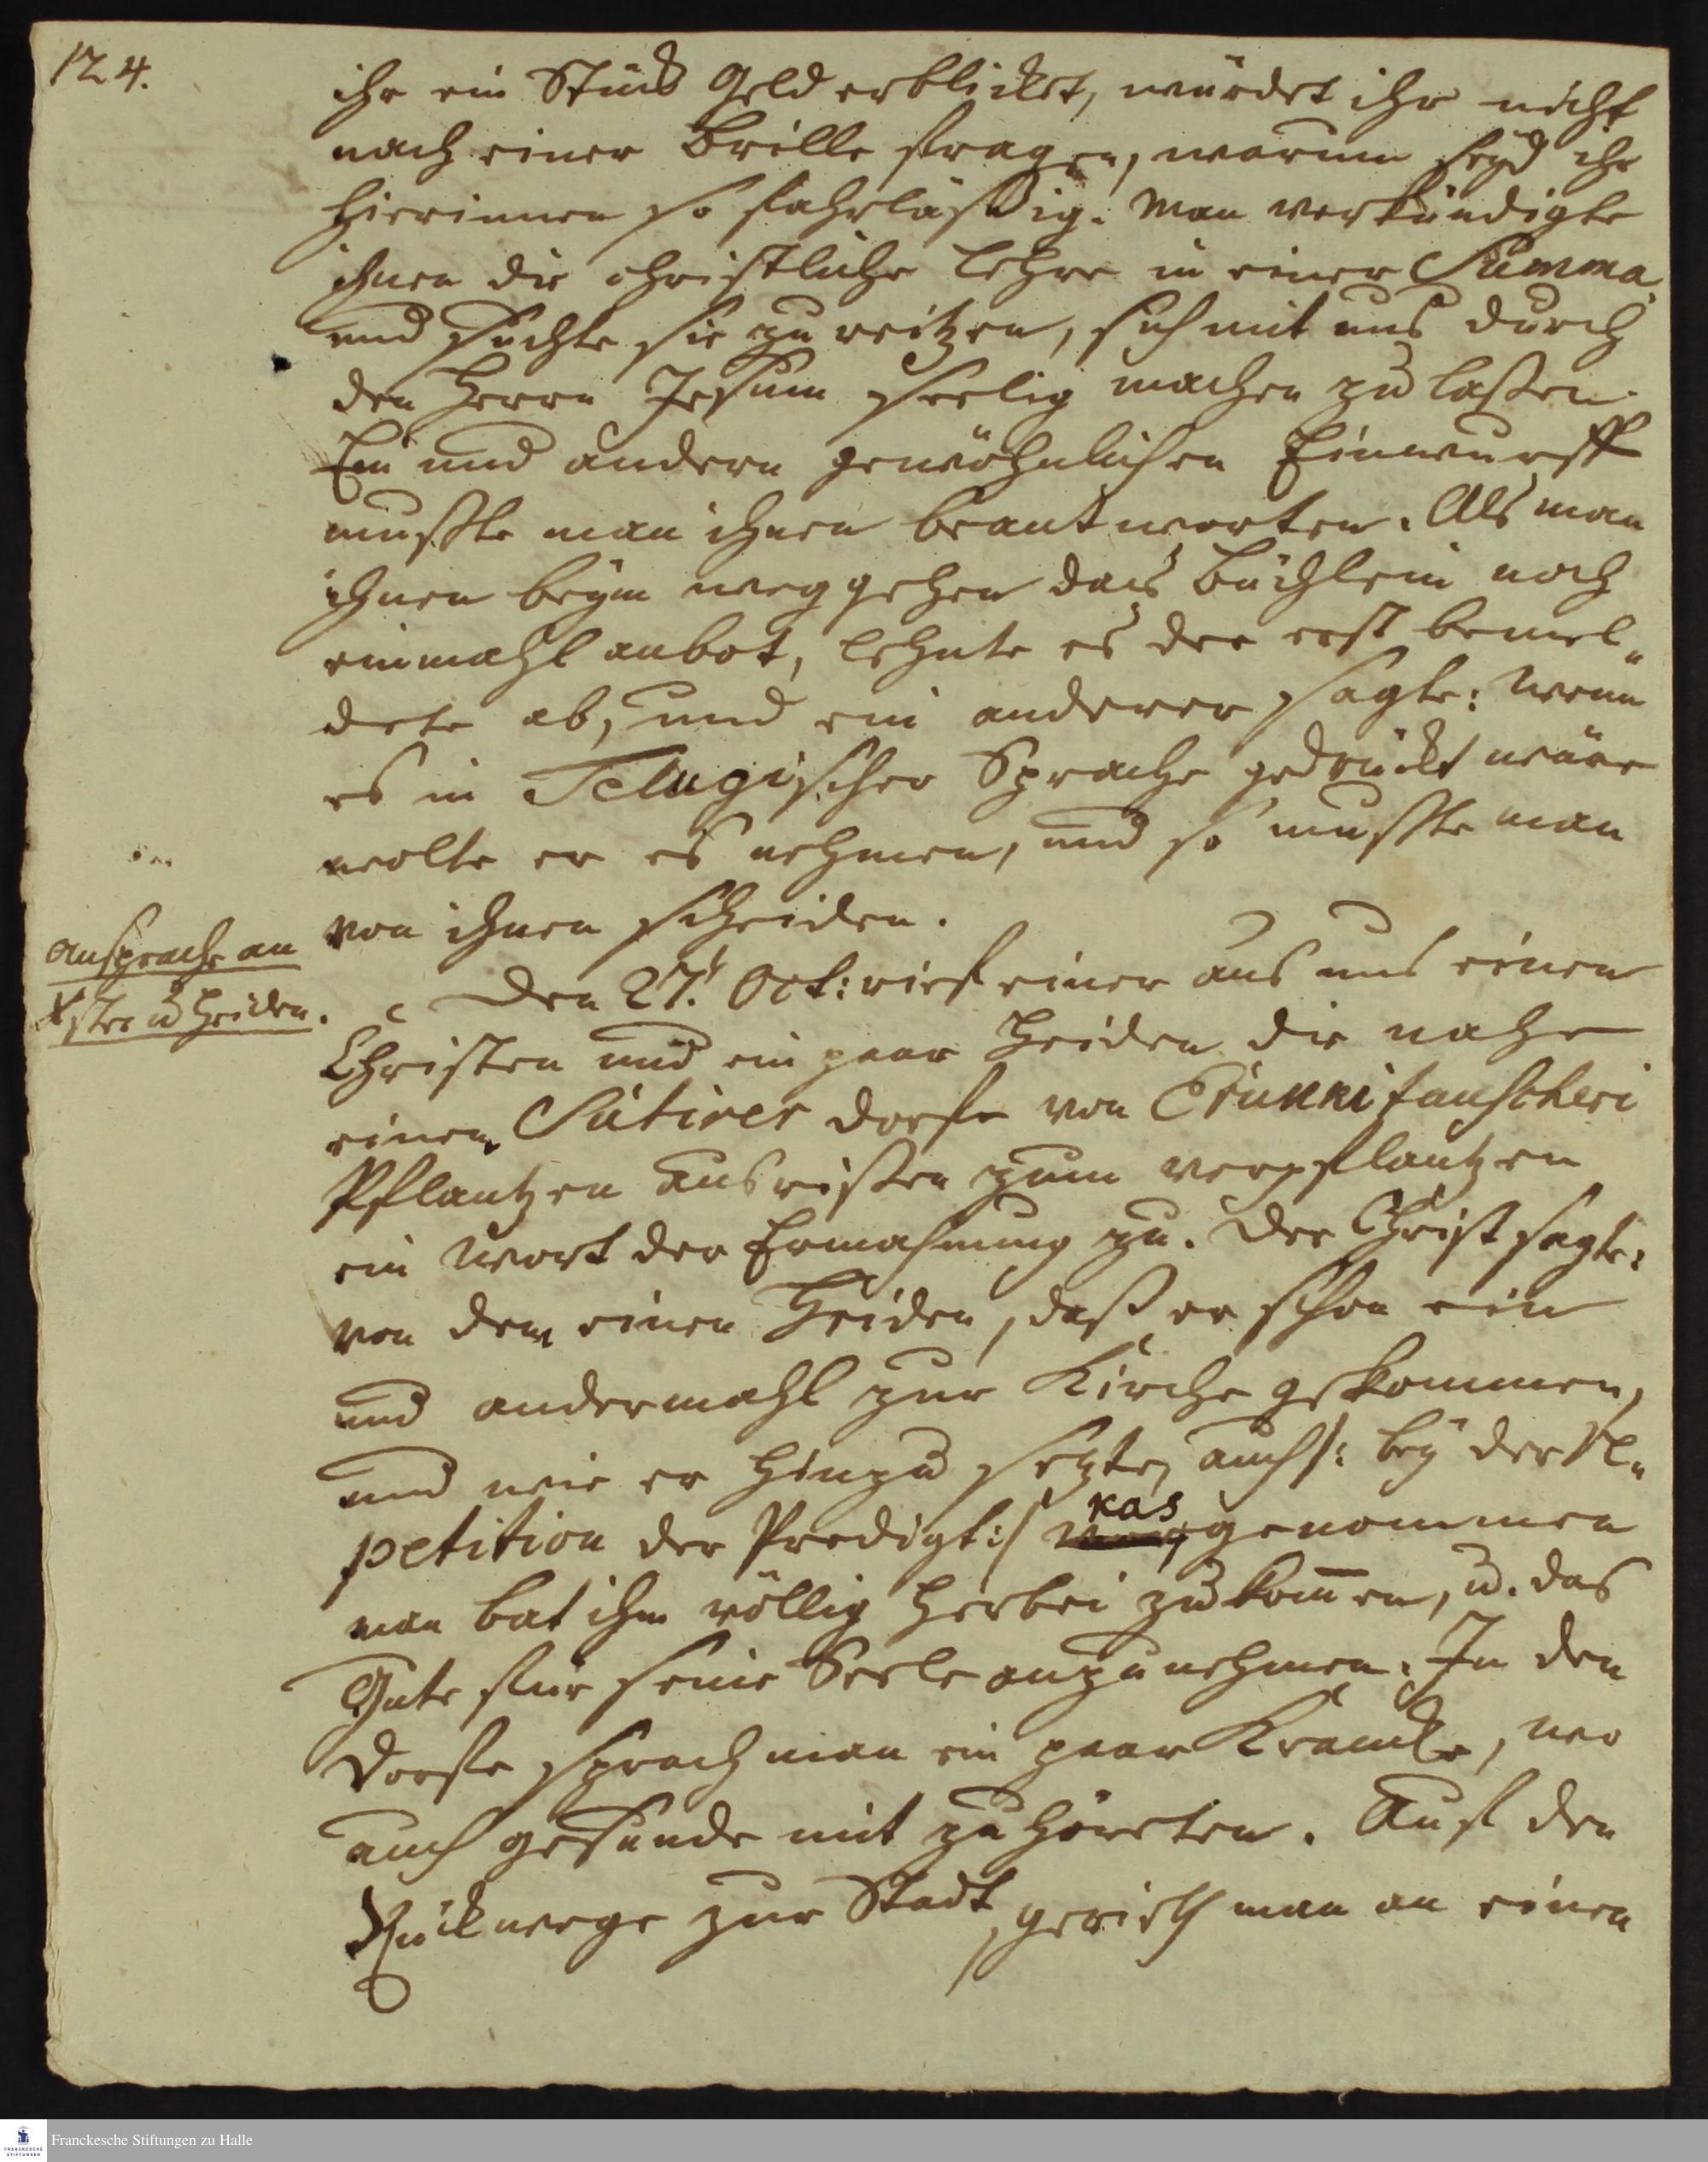 124.
ihr ein Stück Geld erblicket, würdet ihr nicht
nach einer Brille fragen, warum seyd ihr
hierinnen so fahrläßig. Man verkündigte
ihnen die christliche Lehre in einer Summa,
und suchte sie zu reitzen, sich mit uns durch
den Herrn Jesum seelig machen zu laßen.
Ein und andern gewöhnlichen Einwurff
mußte man ihnen beantworten. Als man
ihnen beym weggehen das Büchlein noch
einmahl anbot, lehnte es der erst bemel„
dete ab, und ein anderer sagte: Wenn
es in Telugischer Sprache gedruckt wäre
wolte er es nehmen, und so mußte man
von ihnen scheiden.
Ansprache an
Xsten u Heiden.
Den 27.t Oct: rief einer aus uns einen
Christen und ein paar Heiden die nahe
einem Sutirer Dorfe von Erukkitanscheri
Pflantzen ausrißen zum verpflantzen
ein Wort der Ermahnung zu. Der Christ sagte
von dem einen Heiden, daß er schon ein
und andermahl zur Kirche gekommen,
und wie er hinzu setzte, auch /: bey der Re„
petition der Predigt :/ kas
genommen
man bat ihn völlig herbei zu kom̅en, u. das
Gute für seine Seele anzunehmen. In dem
Dorfe sprach man ein paar Krancke, wo
auch gesunde mit zuhöreten. Auf dem
Rückwege zur Stadt, gerieth man an einen
Franckesche Stiftungen zu Halle